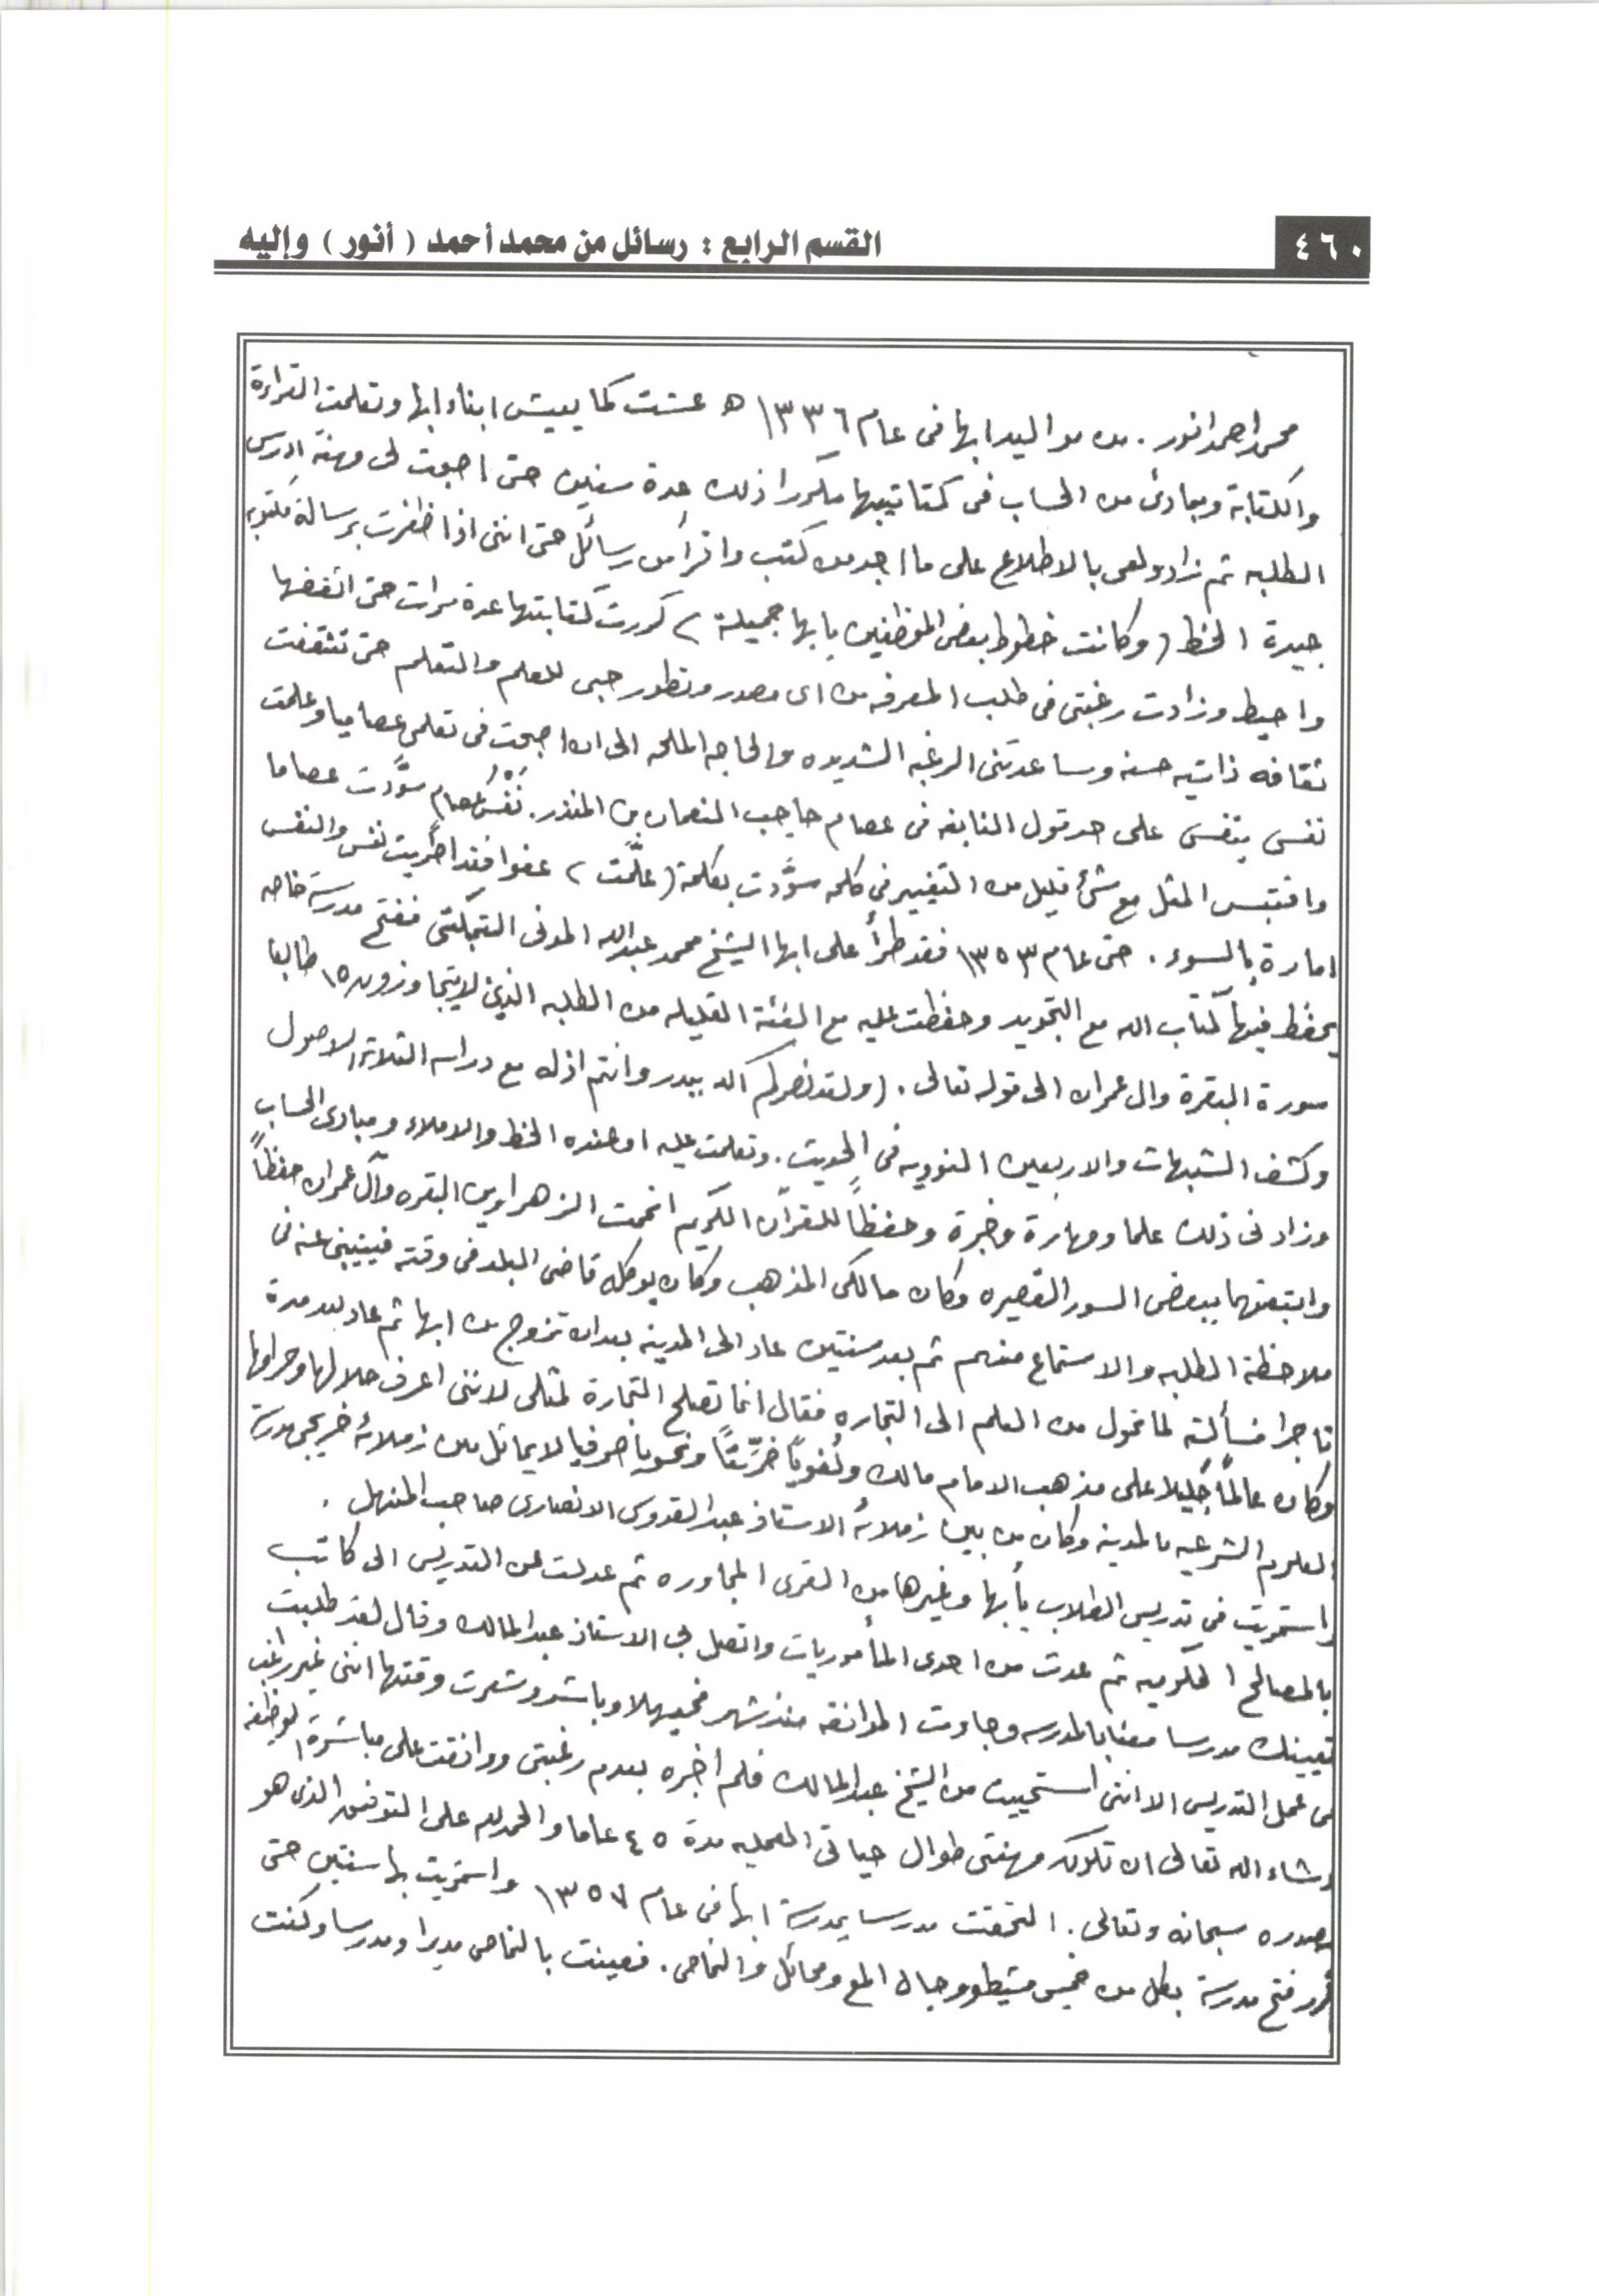 ٤٦٠
القسم الرابع : رسائل من محمد أحمد ( أنور ) وإليه
محمد احمد انور . من مواليد ابها في عام ١٣٣٦ ه عشت كما يعيش ابناء ابها وتعلمت القراءة
والكتابة ومبادئ من الحساب في كتاتيبها مكررا ذلك عدة سنين حتى اصبحت لى مهنة ادرس
الطلبه ثم زاد ولعى بالاطلاع على ما اجد من كتب واقرأ من رسائل حتى اننى اذا ظفرت برسالة مكتوبه
جيدة الخط ( وكانت خطوط بعض الموظفين بابها جميلة ) كررت كتابتها عدة مرات حتى اتقنها
واحيط وزادت رغبتى فى طلب المعرفه من اى مصدر وتطور حبى للعلم والتعلم حتى تثقفت
ثقافه ذاتيه حسنه وساعدتنى الرغبه الشديده والحاجه الملحه الى ان اصبحت فى تعلمى عصاميا وعلمت
نفسى بنفسى على حد قول النابغه فى عصام حاجب النعمان بن المنذر . نَفْسُ عصام سوَّدت عصاما
واقتبس المثل مع شئ قليل من التغيير فى كلمه سوَّدت بكلمة ( علَّمت ) عفوا فقد اطريت نفسى والنفس
امارة بالسوء . حتى عام ١٣٥٣ فقد طرأ على ابها الشيخ محمد عبدالله المدنى التنبكتى ففتح مدرسة خاصه
يحفظ فيها كتاب الله مع التجويد وحفظت عليه مع الفئة القليله من الطلبه الذين لا يتجاوزون ١٥ طالبا
سورة البقرة وال عمران الى قوله تعالى . ( ولقد نصركم الله ببدر وانتم اذله مع دراسه الثلاثة الاصول
وكشف الشبهات والاربعين النوويه فى الحديث . وتعلمت عليه او عنده الخط والاملاء ومبادئ الحساب
وزادنى ذلك علما ومهارة وخبرة وحفظاً للقرآن الكريم اتممت الزهراوين البقره وآل عمران حفظاً
واتبعتهما ببعض السور القصيره وكان مالكى المذهب وكان يوكله قاضى البلد فى وقته فينيبنى عنه فى
ملاحظة الطلبه والاستماع منهم ثم بعد سنتين عاد الى المدينه بعد ان تزوج من ابها ثم عاد بعد مدة
تاجرا فسألته لما تحول من العلم الى التجاره فقال انما تصلح التجارة لمثلى لاننى اعرف حلالها وحرامها
وكان عالماً جليلا على مذهب الامام مالك ولُغوياً خرِّيتاً ونحويا صرفيا لا يماثل من زملائه خريجى مدرسة
العلوم الشرعيه بالمدينه وكان من بين زملائه الاستاذ عبدالقدوس الانصارى صاحب المنهل .
واستمريت فى تدريس الطلاب بأبها وغيرها من القرى المجاوره ثم عدلت عن التدريس الى كاتب
بالمصالح الحكوميه ثم عدت من احدى المأموريات واتصل بى الاستاذ عبدالمالك وقال لقد طلبت
تعيينك مدرسا معنا بالمدرسه وجاءت الموافقه منذ شهر فحيهلا وباشر وشعرت وقتها اننى غير راغب
فى عمل التدريس الا اننى استحييت من الشيخ عبدالمالك فلم أخبره بعدم رغبتى ووافقت على مباشرة الوظيفه
وشاء الله تعالى ان تكون مهنتى طوال حياتى العمليه مدة ٤٥ عاما والحمد لله على التوفيق الذى هو
مصدره سبحانه وتعالى . التحقت مدرسا بمدرسة ابها فى عام ١٣٥٧ واستمريت بها سنتين حتى
تقرر فتح مدرسة بكل من خميس مشيط ورجال المع ومحائل والنماص . فعينت بالنماص مديرا ومدرسا وكنت